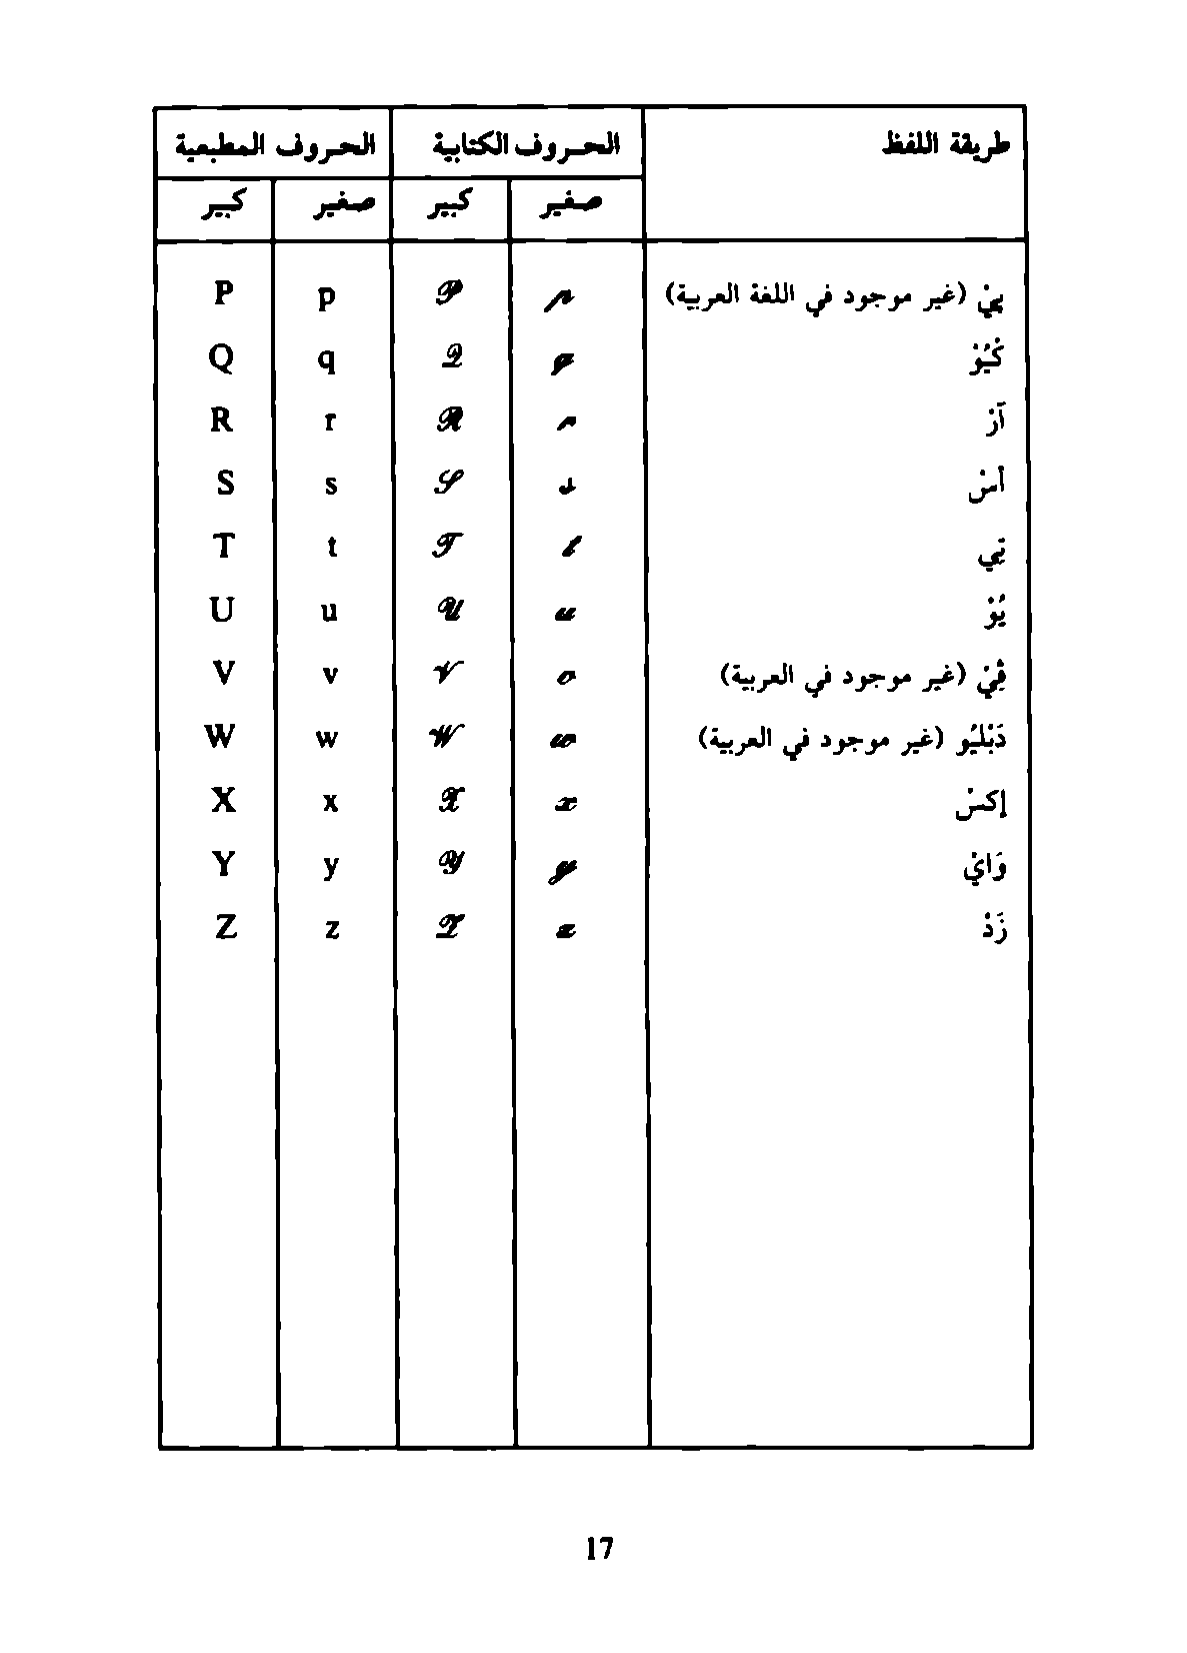 طريقة اللفظ الحروف الكتابية الحروف المطبعية
صغير كبير صغير كبير
پيْ (غير موجود في اللغة العربية) p P p P
كْيُوْ q Q q Q
آرْ r R r R
أسْ s S s S
تِي t T t T
يُوْ u U u U
ڤِيْ (غير موجود في العربية) v V v V
دَبْلْيُو (غير موجود في العربية) w W w W
إكسْ x X x X
وَايْ y Y y Y
زَدْ z Z z Z
17